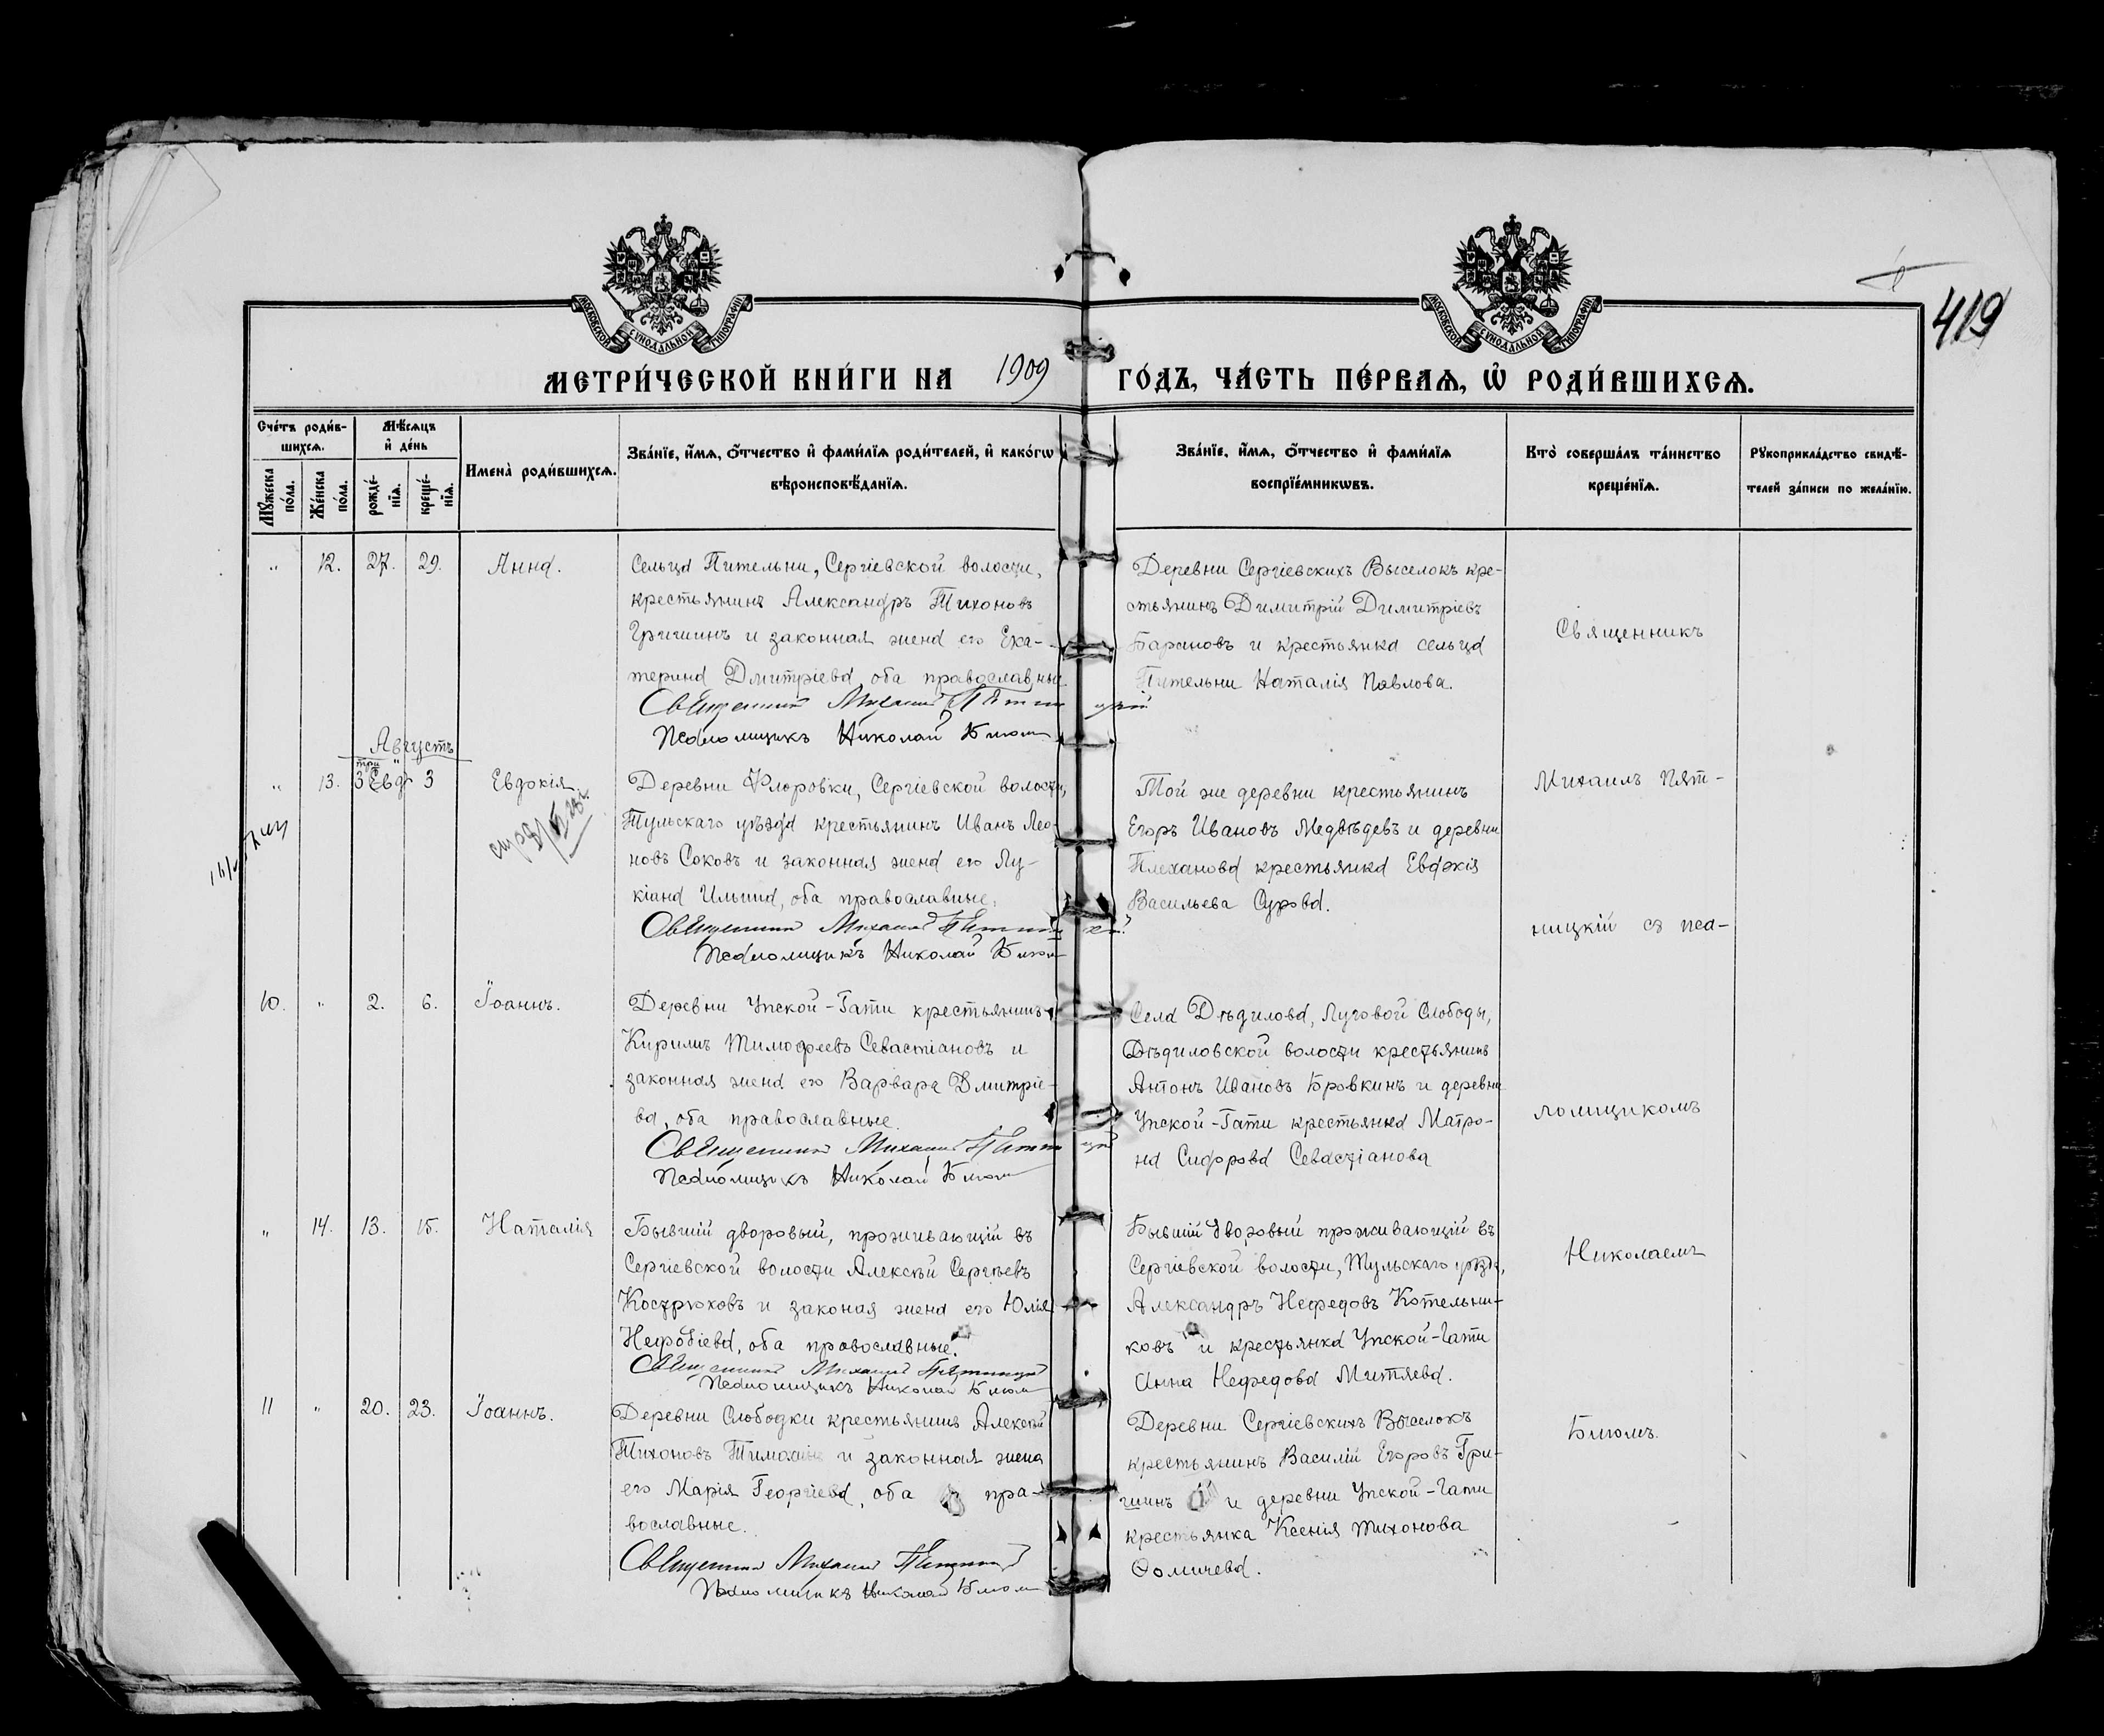 419
МОСКОВСКОЙ СѴНОДАЛЬНОЙ ТИПОГРАФІИ
МОСКОВСКОЙ СѴНОДАЛЬНОЙ ТИПОГРАФІИ
МЕТРИ́ЧЕСКОЙ КНИ́ГИ НА 1909 ГО́ДЪ, ЧА́СТЬ ПЕ́РВАѦ, Ѡ҆ РОДИ́ВШИХСѦ.
Сче́тъ роди́в-
шихсѧ.
Мꙋ́жеска по́ла.
Же́нска по́ла.
Мѣ́сѧцъ
и҆ де́нь
рожде́-
нїѧ.
креще́-
нїѧ.
Имена̀ роди́вшихсѧ.
Зва́нїе, и҆́мѧ, ѻ҆́тчество и҆ фами́лїѧ роди́телей, и҆ како́гѡ
вѣроисповѣ́данїѧ.
Зва́нїе, и҆́мѧ, ѻ҆́тчество и҆ фами́лїѧ
воспрїе́мникѡвъ.
Кто̀ соверша́лъ та́инство
креще́нїѧ.
Рꙋкоприкла́дство свидѣ́-
телей за́писи по жела́нїю.
" 12. 27. 29. Анна.
Сельца Пительни, Сергіевской волости,
крестьянинъ Александръ Тихоновъ
Гришинъ и законная жена его Ека-
терина Дмитріева, оба православные
Священникъ Михаилъ Пятницкій
Псаломщикъ Николай Бигом
Деревни Сергіевскихъ Выселокъ кре-
стьянинъ Димитрій Димитріевъ
Барановъ и крестьянка сельца
Пительни Наталія Павлова.
Священникъ
Августъ
три
" 13. 3 Евд 3 Евдокія
Деревни Флоровки, Сергіевской волости,
Тульскаго уѣзда крестьянинъ Иванъ Лео-
новъ Соковъ и законная жена его Лу-
кіана Ильина, оба православные.
Священникъ Михаилъ Пятницкій
Псаломщикъ Николай Бигом
Той же деревни крестьянинъ
Егоръ Ивановъ Медвѣдевъ и деревни
Плеханова крестьянка Евдокія
Васильева Сурова.
Михаилъ Пят-
ницкій съ пса-
10. " 2. 6. Іоаннъ.
Деревни Упской-Гати крестьянинъ
Кирилъ Тимофеевъ Севастіановъ и
законная жена его Варвара Дмитріе-
ва, оба православные.
Священникъ Михаилъ Пятницкій
Псаломщикъ Николай Бигом
Села Дѣдилова, Луговой Слободы,
Дѣдиловской волости крестьянинъ
Антонъ Ивановъ Бровкинъ и деревни
Упской-Гати крестьянка Матро-
на Сидорова Севастіанова
ломщикомъ
" 14. 13. 15. Наталія
Бывшій дворовый, проживающій въ
Сергіевской волости Алексѣй Сергѣевъ
Кострюковъ и законая жена его Юлія
Нефодіева, оба православные.
Священникъ Михаилъ Пятницкій
Псаломщикъ Николай Бигом
Бывшій дворовый проживающій въ
Сергіевской волости, Тульскаго уѣзда,
Александръ Нефедовъ Котельни-
ковъ и крестьянка Упской-Гати
Анна Нефедова Митяева.
Николаемъ
11 " 20. 23. Іоаннъ.
Деревни Слободки крестьянинъ Алексѣй
Тихоновъ и законная жена
его Марія Георгіева, оба пра-
вославные.
Священникъ Михаилъ Пятницкій
Псаломщикъ Николай Бигом
Деревни Сергіевскихъ Выселокъ
крестьянинъ Василій Егоровъ Гри-
шинъ и деревни Упской-Гати
крестьянка Ксенія Тихонова
Ѳомичева.
Бигомъ.